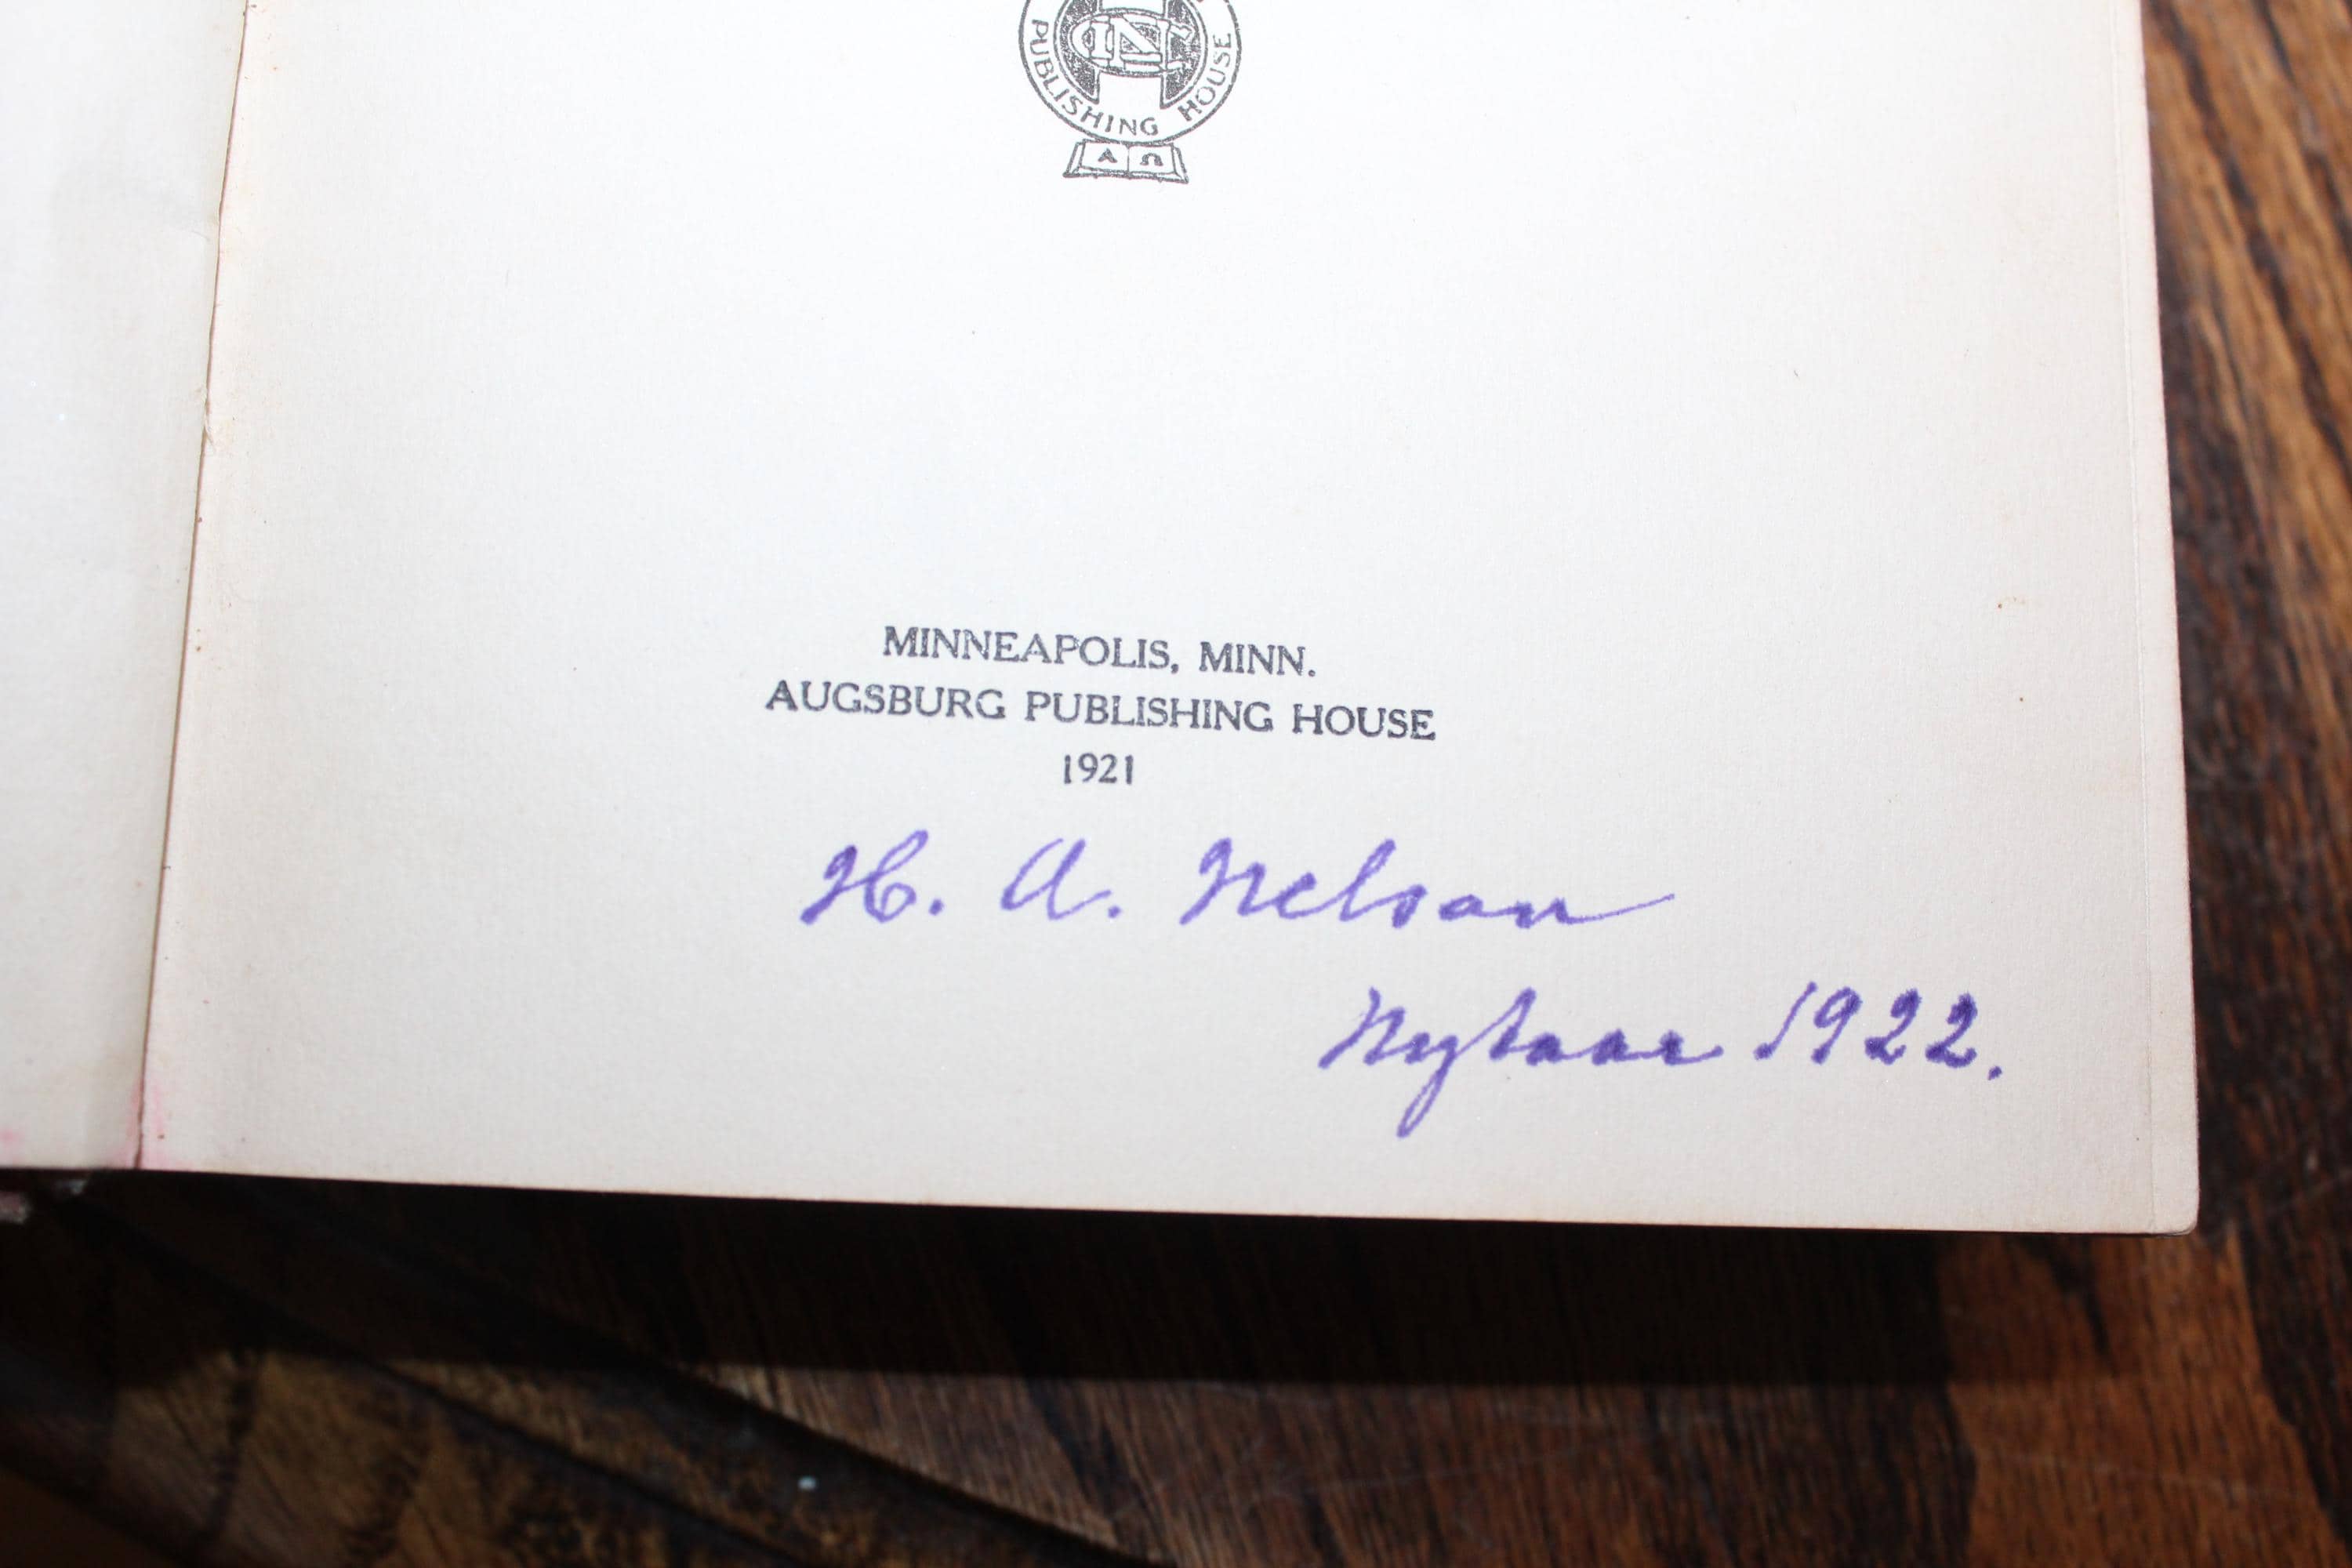 PUBLISHING HOUSE
A Ω
MINNEAPOLIS, MINN.
AUGSBURG PUBLISHING HOUSE
1921
H. A. Nelson
Nytaar 1922.